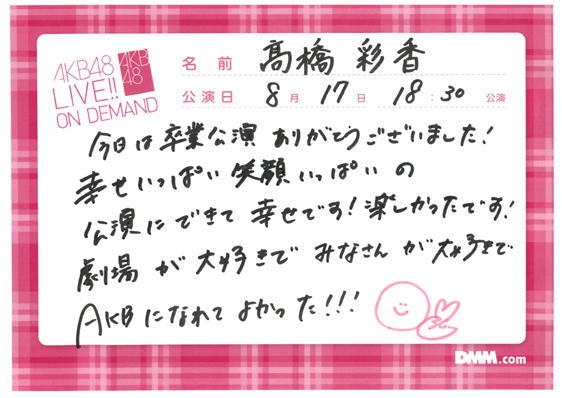 AKB48
LIVE!!
ON DEMAND
AKB
48
名前 髙橋 彩香
公演日 8月 17日 18:30 公演
今日は卒業公演 ありがとうございました!
幸せいっぱい 笑顔いっぱいの
公演にできて 幸せです! 楽しかったです!
劇場 が 大好きで みなさん が 大好きで
AKBになれて よかった!!!
DMM.com